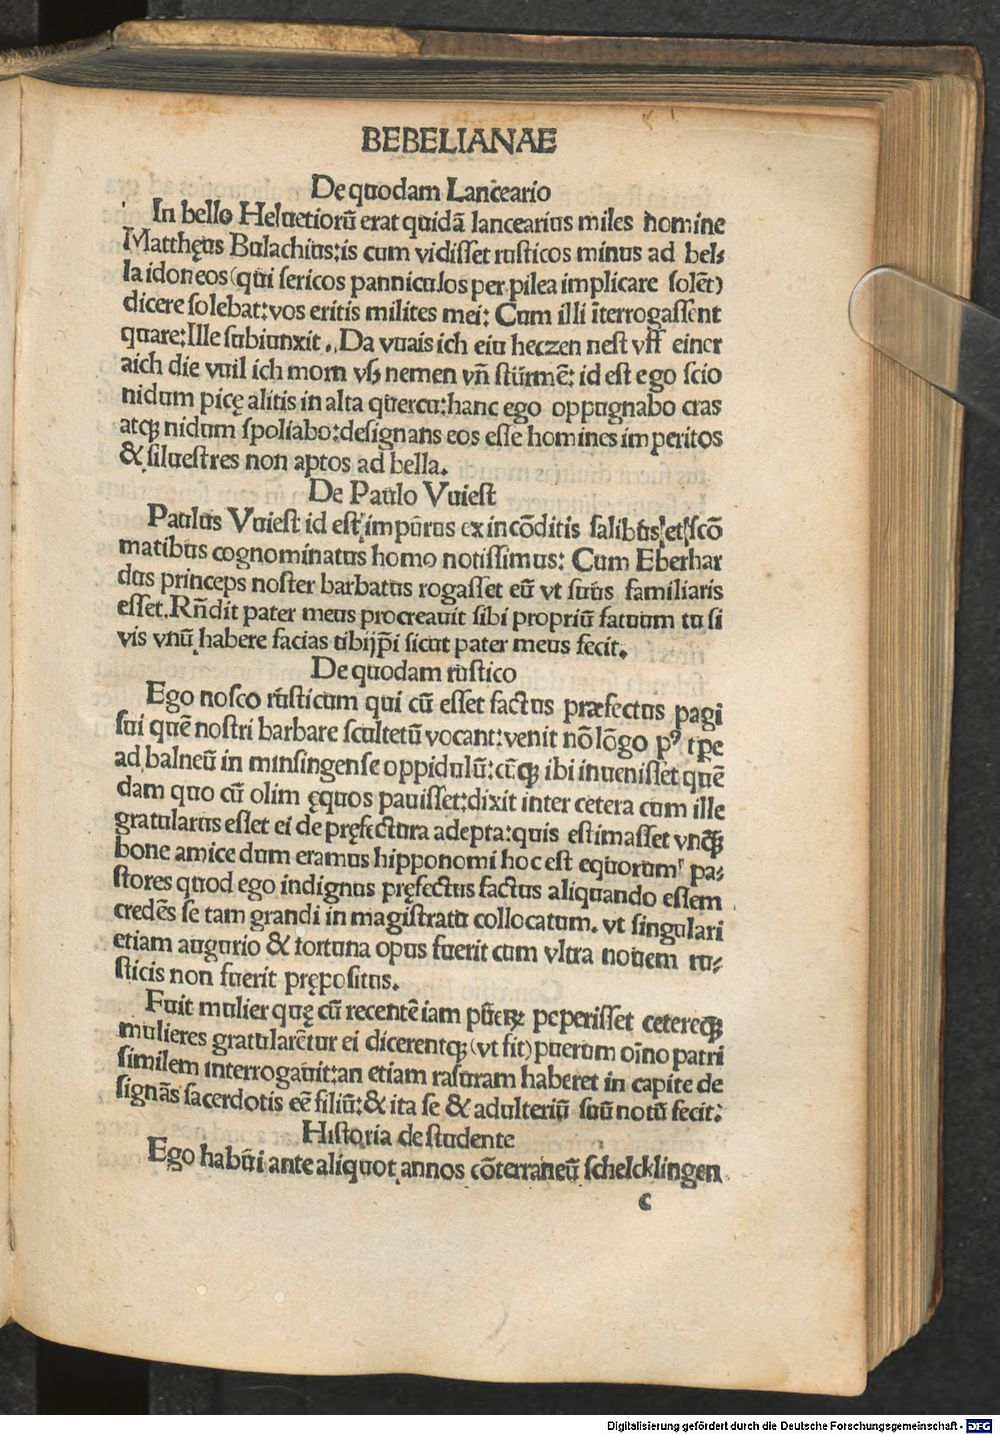 BEBELIANAE
De quodam Lanceario
In bello Heluetiorū erat quidā lancearius miles nomine
Matthęus Bulachius:is cum vidisset rusticos minus ad bel⸗
la idoneos(qui sericos panniculos per pilea implicare solēt)
dicere solebat:vos eritis milites mei: Cum illi īterrogassent
quare:Ille subiunxit. Da vuais ich ein heczen nest vff einer
aich die vuil ich morn vß nemen vn̄ stürmē: id est ego scio
nidum picę alitis in alta quercu:hanc ego oppugnabo cras
atqꝫ nidum spoliabo:designans eos esse homines imperitos
& siluestres non aptos ad bella.
De Paulo Vuiest
Paulus Vuiest id est impurus ex incōditis salibus et scō
matibus cognominatus homo notissimus: Cum Eberhar
dus princeps noster barbatus rogasset eū vt suus familiaris
esset. Rn̄dit pater meus procreauit sibi propriū fatuum tu si
vis vnū habere facias tibiip̄i sicut pater meus fecit.
De quodam rustico
Ego nosco rusticum qui cū esset factus præfectus pagi
sui quē nostri barbare scultetū vocant:venit nō lōgo pꝰ tp̄e
ad balneū in minsingense oppidulū:cūqꝫ ibi inuenisset quē
dam quo cū olim ęquos pauisset:dixit inter cetera cum ille
gratularus esset ei de pręfectura adepta:quis estimasset vnq̄ꝫ
bone amice dum eramus hipponomi hoc est equorum pa⸗
stores quod ego indignus pręfectus factus aliquando essem
credēs se tam grandi in magistratu collocatum. vt singulari
etiam augurio & fortuna opus fuerit cum vltra nouem ru⸗
sticis non fuerit prępositus.
Fuit mulier quę cū recentē iam pūerꝫ peperisset ceterēqꝫ
mulieres gratularētur ei dicerentqꝫ(vt fit)puerum oīno patri
similem interrogauit:an etiam rasuram haberet in capite de
signās sacerdotis eē filiū:& ita se & adulteriū suū notū fecit:
Historia de studente
Ego habui ante aliquot annos cōterraneū schelcklingen
c
Digitalisierung gefördert durch die Deutsche Forschungsgemeinschaft - DFG